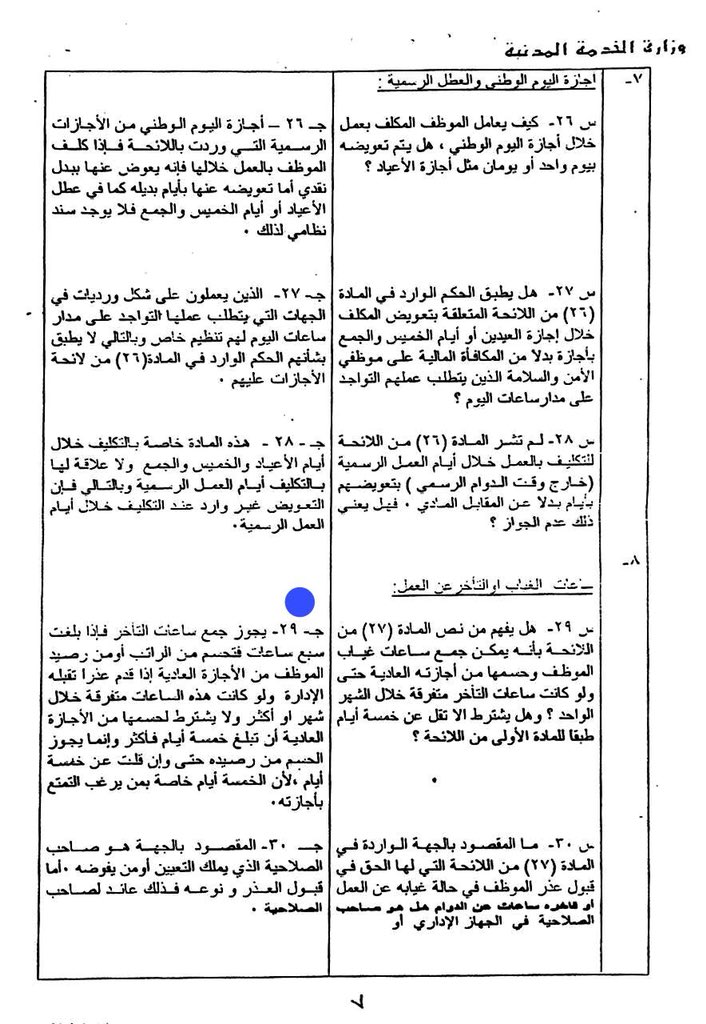 وزارة الخدمة المدنية
٧-
اجازة اليوم الوطني والعطل الرسمية :
س ٢٦- كيف يعامل الموظف المكلف بعمل
خلال أجازة اليوم الوطني ، هل يتم تعويضه
بيوم واحد أو يومان مثل أجازة الأعياد ؟
جـ ٢٦ – أجازة اليوم الوطني من الأجازات
الرسمية التي وردت باللائحة فإذا كلف
الموظف بالعمل خلالها فإنه يعوض عنها ببدل
نقدي أما تعويضه عنها بأيام بديله كما في عطل
الأعياد أو أيام الخميس والجمع فلا يوجد سند
نظامي لذلك ٠
س ٢٧- هل يطبق الحكم الوارد في المادة
(٢٦) من اللائحة المتعلقة بتعويض المكلف
خلال إجازة العيدين أو أيام الخميس والجمع
بأجازة بدلا من المكافأة المالية على موظفي
الأمن والسلامة الذين يتطلب عملهم التواجد
على مدار ساعات اليوم ؟
جـ ٢٧- الذين يعملون على شكل ورديات في
الجهات التي يتطلب عملها التواجد على مدار
ساعات اليوم لهم تنظيم خاص وبالتالي لا يطبق
بشأنهم الحكم الوارد في المادة(٢٦) من لائحة
الأجازات عليهم ٠
س ٢٨- لم تشر المادة (٢٦) من اللائحة
للتكليف بالعمل خلال أيام العمل الرسمية
(خارج وقت الدوام الرسمي ) بتعويضهم
بأيام بدلا عن المقابل المادي ٠ فهل يعني
ذلك عدم الجواز ؟
جـ - ٢٨ - هذه المادة خاصة بالتكليف خلال
أيام الأعياد والخميس والجمع ولا علاقة لها
بالتكليف أيام العمل الرسمية وبالتالي فإن
التعويض غير وارد عند التكليف خلال أيام
العمل الرسمية٠
٨-
ساعات الغياب او التأخر عن العمل:
س ٢٩- هل يفهم من نص المادة (٢٧) من
اللائحة بأنه يمكن جمع ساعات غياب
الموظف وحسمها من أجازته العادية حتى
ولو كانت ساعات التأخر متفرقة خلال الشهر
الواحد ؟ وهل يشترط الا تقل عن خمسة أيام
طبقا للمادة الأولى من اللائحة ؟
جـ ٢٩- يجوز جمع ساعات التأخر فإذا بلغت
سبع ساعات فتحسم من الراتب أومن رصيد
الموظف من الأجازة العادية إذا قدم عذرا تقبله
الإدارة ولو كانت هذه الساعات متفرقة خلال
شهر او أكثر ولا يشترط لحسمها من الأجازة
العادية أن تبلغ خمسة أيام فأكثر وإنما يجوز
الحسم من رصيده حتى وإن قلت عن خمسة
أيام ،لأن الخمسة أيام خاصة بمن يرغب التمتع
بأجازته٠
س ٣٠- ما المقصود بالجهة الواردة في
المادة (٢٧) من اللائحة التي لها الحق في
قبول عذر الموظف في حالة غيابه عن العمل
او تأخره ساعات عن الدوام هل هو صاحب
الصلاحية في الجهاز الإداري أو
جـ ٣٠- المقصود بالجهة هو صاحب
الصلاحية الذي يملك التعيين أومن يفوضه ٠أما
قبول العذر و نوعه فذلك عائد لصاحب
الصلاحية ٠
٧